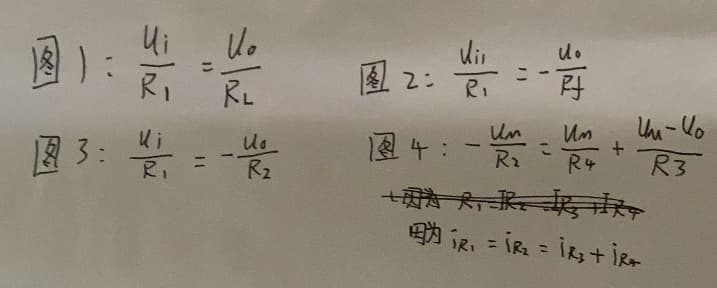 图1: Ui/R1 = Uo/RL
图2: Ui1/R1 = -Uo/Rf
图3: Ui/R1 = -Uo/R2
图4: -Um/R2 = Um/R4 + (Um-Uo)/R3
因为 R1=IR2=IR3+IR4
因为 iR1 = iR2 = iR3 + iR4